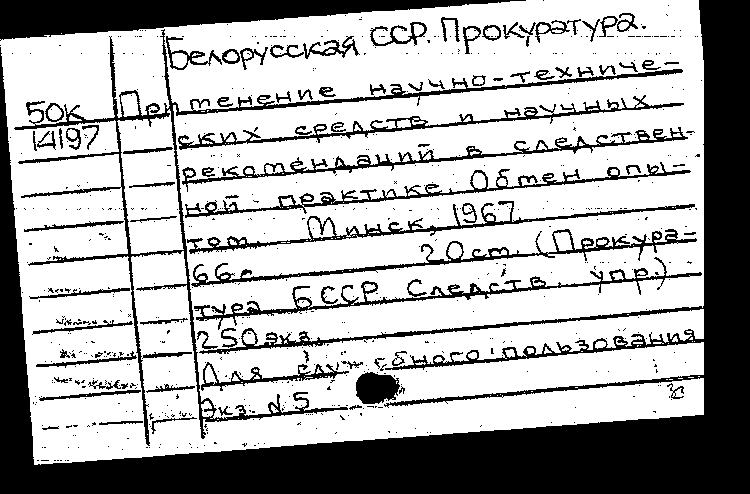 Белорусская ССР. Прокуратура.
50К Применение научно-техниче-
14197 ских средств и научных
рекомендаций в следствен-
ной практике. Обмен опы-
том. Минск, 1967.
66с. 20см. (Прокура-
тура БССР. Следств. упр.)
250экз.
Для служебного пользования
Экз. №5